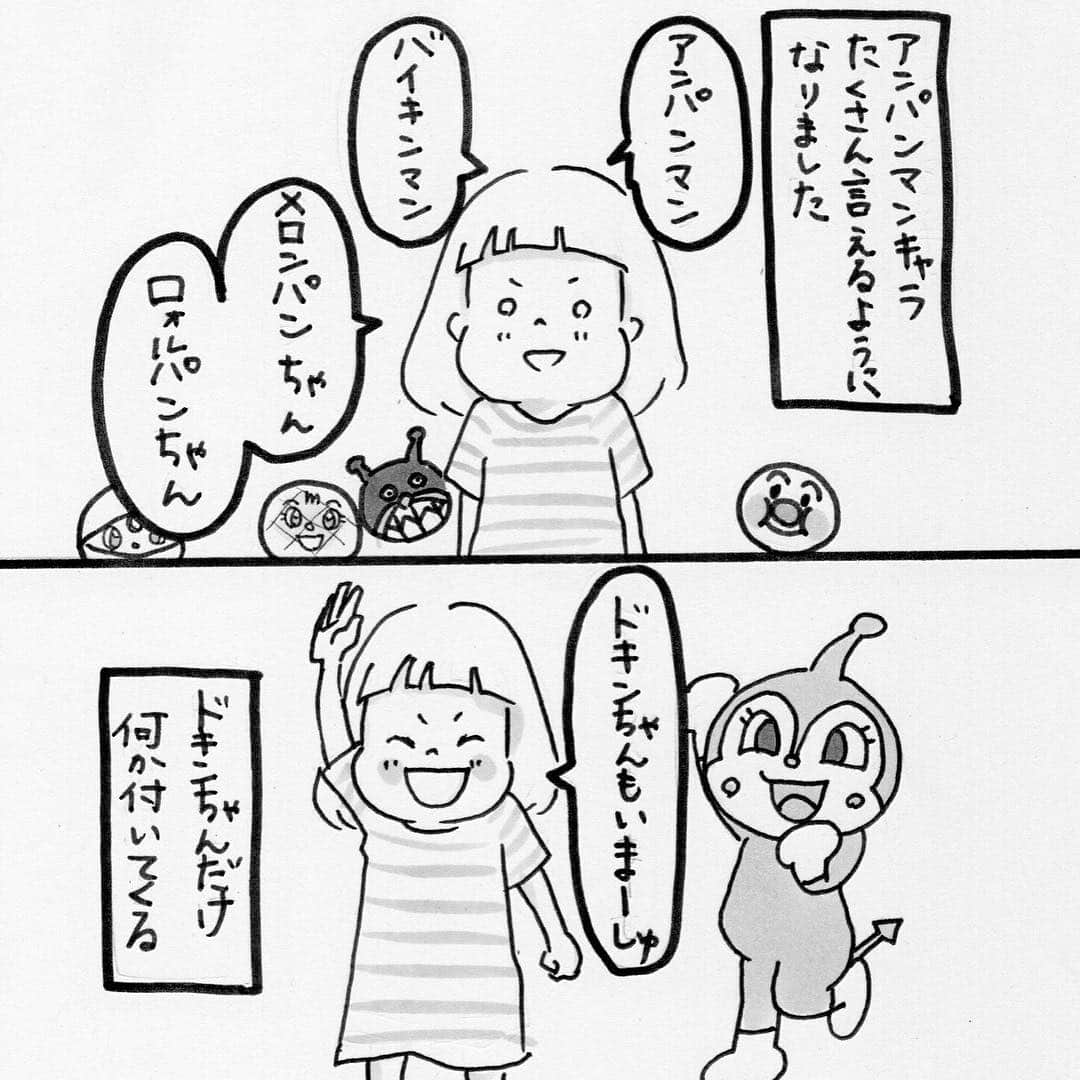 アンパンマンキャラ
たくさん言えるように
なりました
アンパンマン
バイキンマン
メロンパンちゃん
ロォルパンちゃん
ドキンちゃんもいまーしゅ
ドキンちゃんだけ
何か付いてくる